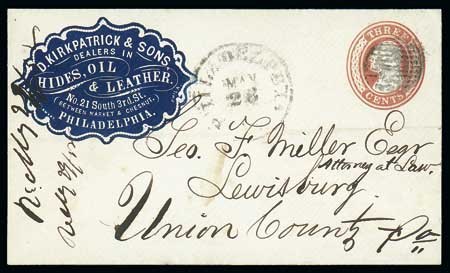 D. KIRKPATRICK & SONS.
DEALERS IN
HIDES, OIL
& LEATHER,
No. 21 South 3rd. St.
(BETWEEN MARKET & CHESNUT)
PHILADELPHIA.
PHILADELPHIA
MAY
28
THREE
CENTS
Geo. F. Miller Esqr
Attorney at Law.
Lewisburg
Union County Pa